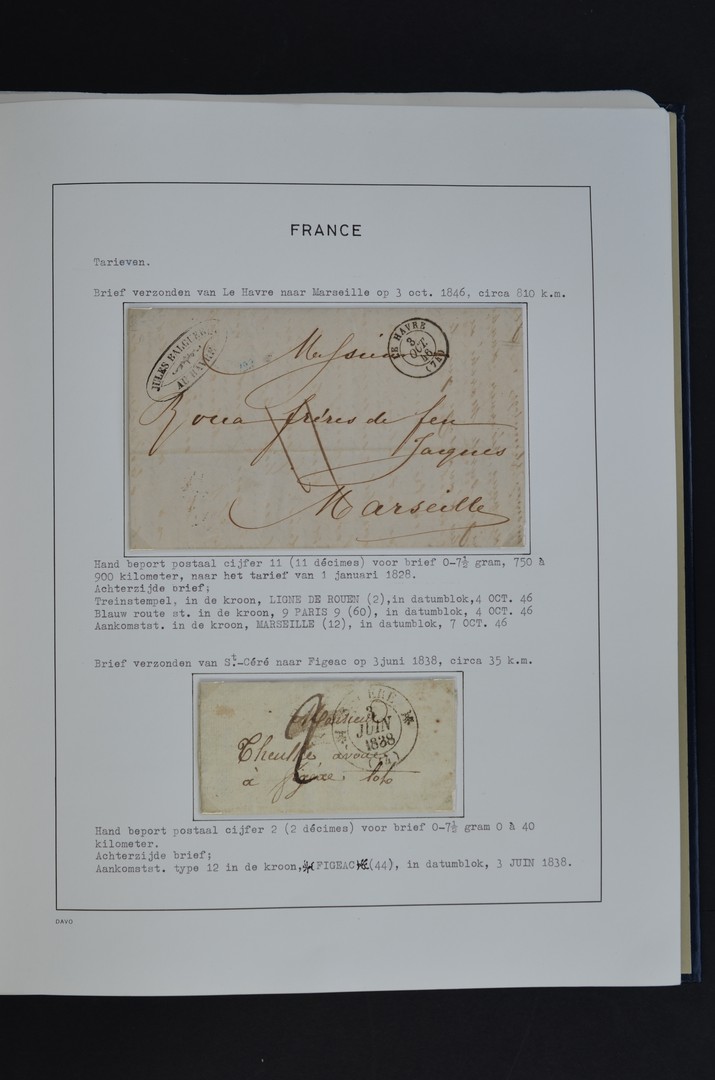 FRANCE
Tarieven.
Brief verzonden van Le Havre naar Marseille op 3 oct. 1846, circa 810 k.m.
JULES BALGUERIE
AU HAVRE
LE HAVRE
3
OCT.
46
(74)
Messieurs
Roux frères de feu
Jacques
11
Marseille
Hand beport postaal cijfer 11 (11 décimes) voor brief 0-7½ gram, 750 à
900 kilometer, naar het tarief van 1 januari 1828.
Achterzijde brief;
Treinstempel, in de kroon, LIGNE DE ROUEN (2),in datumblok,4 OCT. 46
Blauw route st. in de kroon, 9 PARIS 9 (60), in datumblok, 4 OCT. 46
Aankomstst. in de kroon, MARSEILLE (12), in datumblok, 7 OCT. 46
Brief verzonden van St.-Céré naar Figeac op 3juni 1838, circa 35 k.m.
2
3
JUIN
1838
Monsieur
avoué
à figeac, lot
Hand beport postaal cijfer 2 (2 décimes) voor brief 0-7½ gram 0 à 40
kilometer.
Achterzijde brief;
Aankomstst. type 12 in de kroon, FIGEAC (44), in datumblok, 3 JUIN 1838.
DAVO